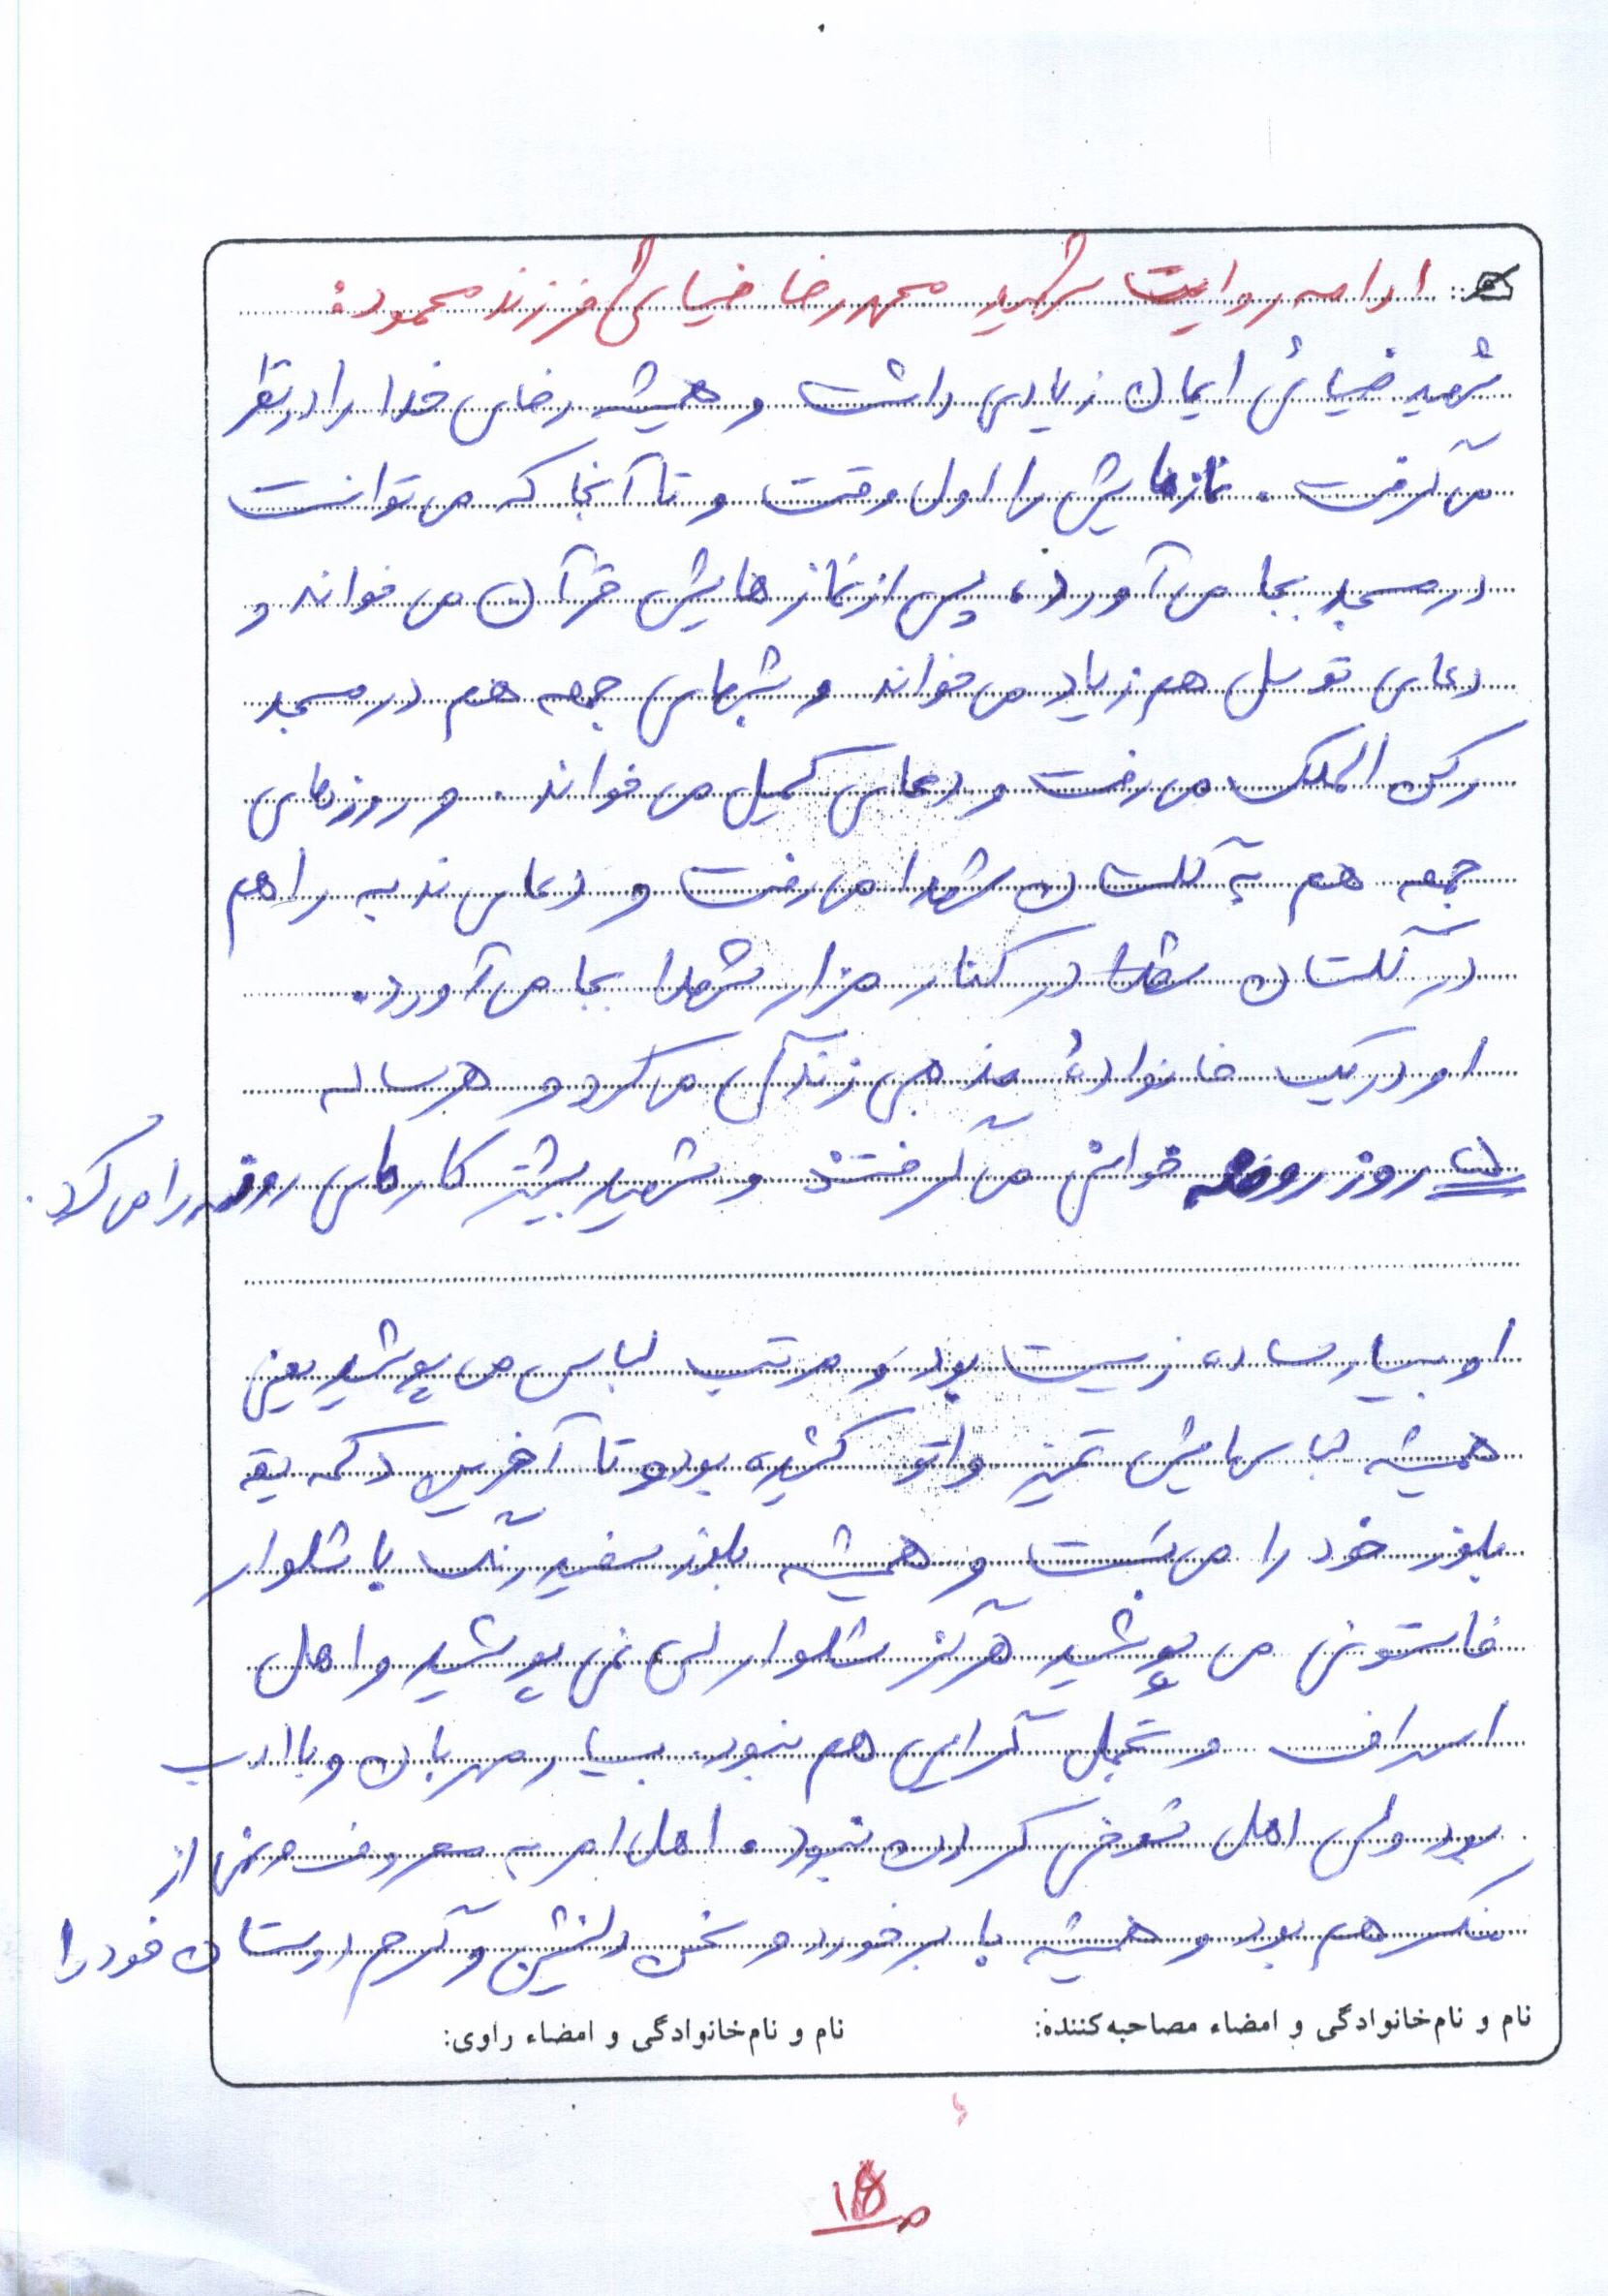 ادامه روایت شهید محمدرضا ضیائی فرزند محمود:
شهید ضیائی ایمان زیادی داشت و همیشه رضای خدا را در نظر
می گرفت. نمازهایش را اول وقت و تا آنجا که می توانست
در مسجد بجا می آورد، پس از نمازهایش قرآن می خواند و
دعای توسل هم زیاد می خواند و شبهای جمعه هم در مسجد
رکن الملک می رفت و دعای کمیل می خواند. و روزهای
جمعه هم به گلستان شهدا می رفت و دعای ندبه را هم
در گلستان شهدا در کنار مزار شهدا بجا می آورد.
او در یک خانوادهٔ مذهبی زندگی می کرد و هر ساله
روز روضه خوانی می گرفتند و شهید بیشتر کارهای روضه را می کرد.
او بسیار ساده زیست بود و مرتب لباس می پوشید یعنی
همیشه لباسهایش تمیز و اتو کشیده بود و تا آخرین دکمه یقه
بلوز خود را می بست و همیشه بلوز سفید رنگ با شلوار
فاستونی می پوشید هرگز شلوار لی نمی پوشید و اهل
اسراف و تجمل گرایی هم نبود. بسیار مهربان و با ادب
بود ولی اهل شوخی کردن نبود. اهل امر به معروف و نهی از
منکر هم بود و همیشه با برخورد و سخن دلنشین و گرم دوستان خود را
نام و نام‌خانوادگی و امضاء مصاحبه‌کننده:
نام و نام‌خانوادگی و امضاء راوی: